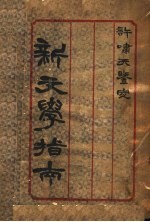 許嘯天鑒定
新文學指南